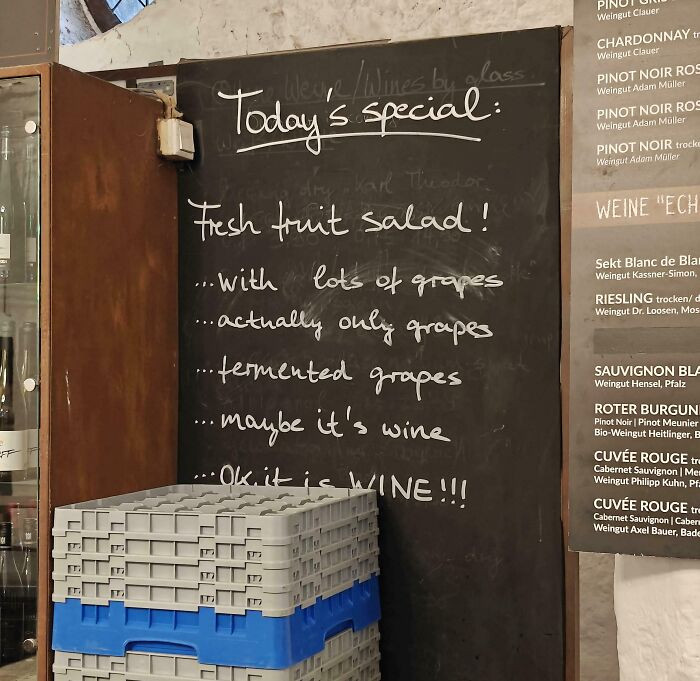 Wines by glass
Today's special:
Fresh fruit salad!
...with lots of grapes
...actually only grapes
...fermented grapes
...maybe it's wine
...OK, it is WINE!!!
PINOT GRIS
Weingut Clauer
CHARDONNAY
Weingut Clauer
PINOT NOIR ROS
Weingut Adam Müller
PINOT NOIR ROS
Weingut Adam Müller
PINOT NOIR trocke
Weingut Adam Müller
WEINE "ECH
Sekt Blanc de Blan
Weingut Kassner-Simon,
RIESLING trocken/ d
Weingut Dr. Loosen, Mos
SAUVIGNON BLA
Weingut Hensel, Pfalz
ROTER BURGUN
Pinot Noir | Pinot Meunier
Bio-Weingut Heitlinger, B
CUVÉE ROUGE tro
Cabernet Sauvignon | Me
Weingut Philipp Kuhn, Pfa
CUVÉE ROUGE tro
Cabernet Sauvignon | Caber
Weingut Axel Bauer, Bade